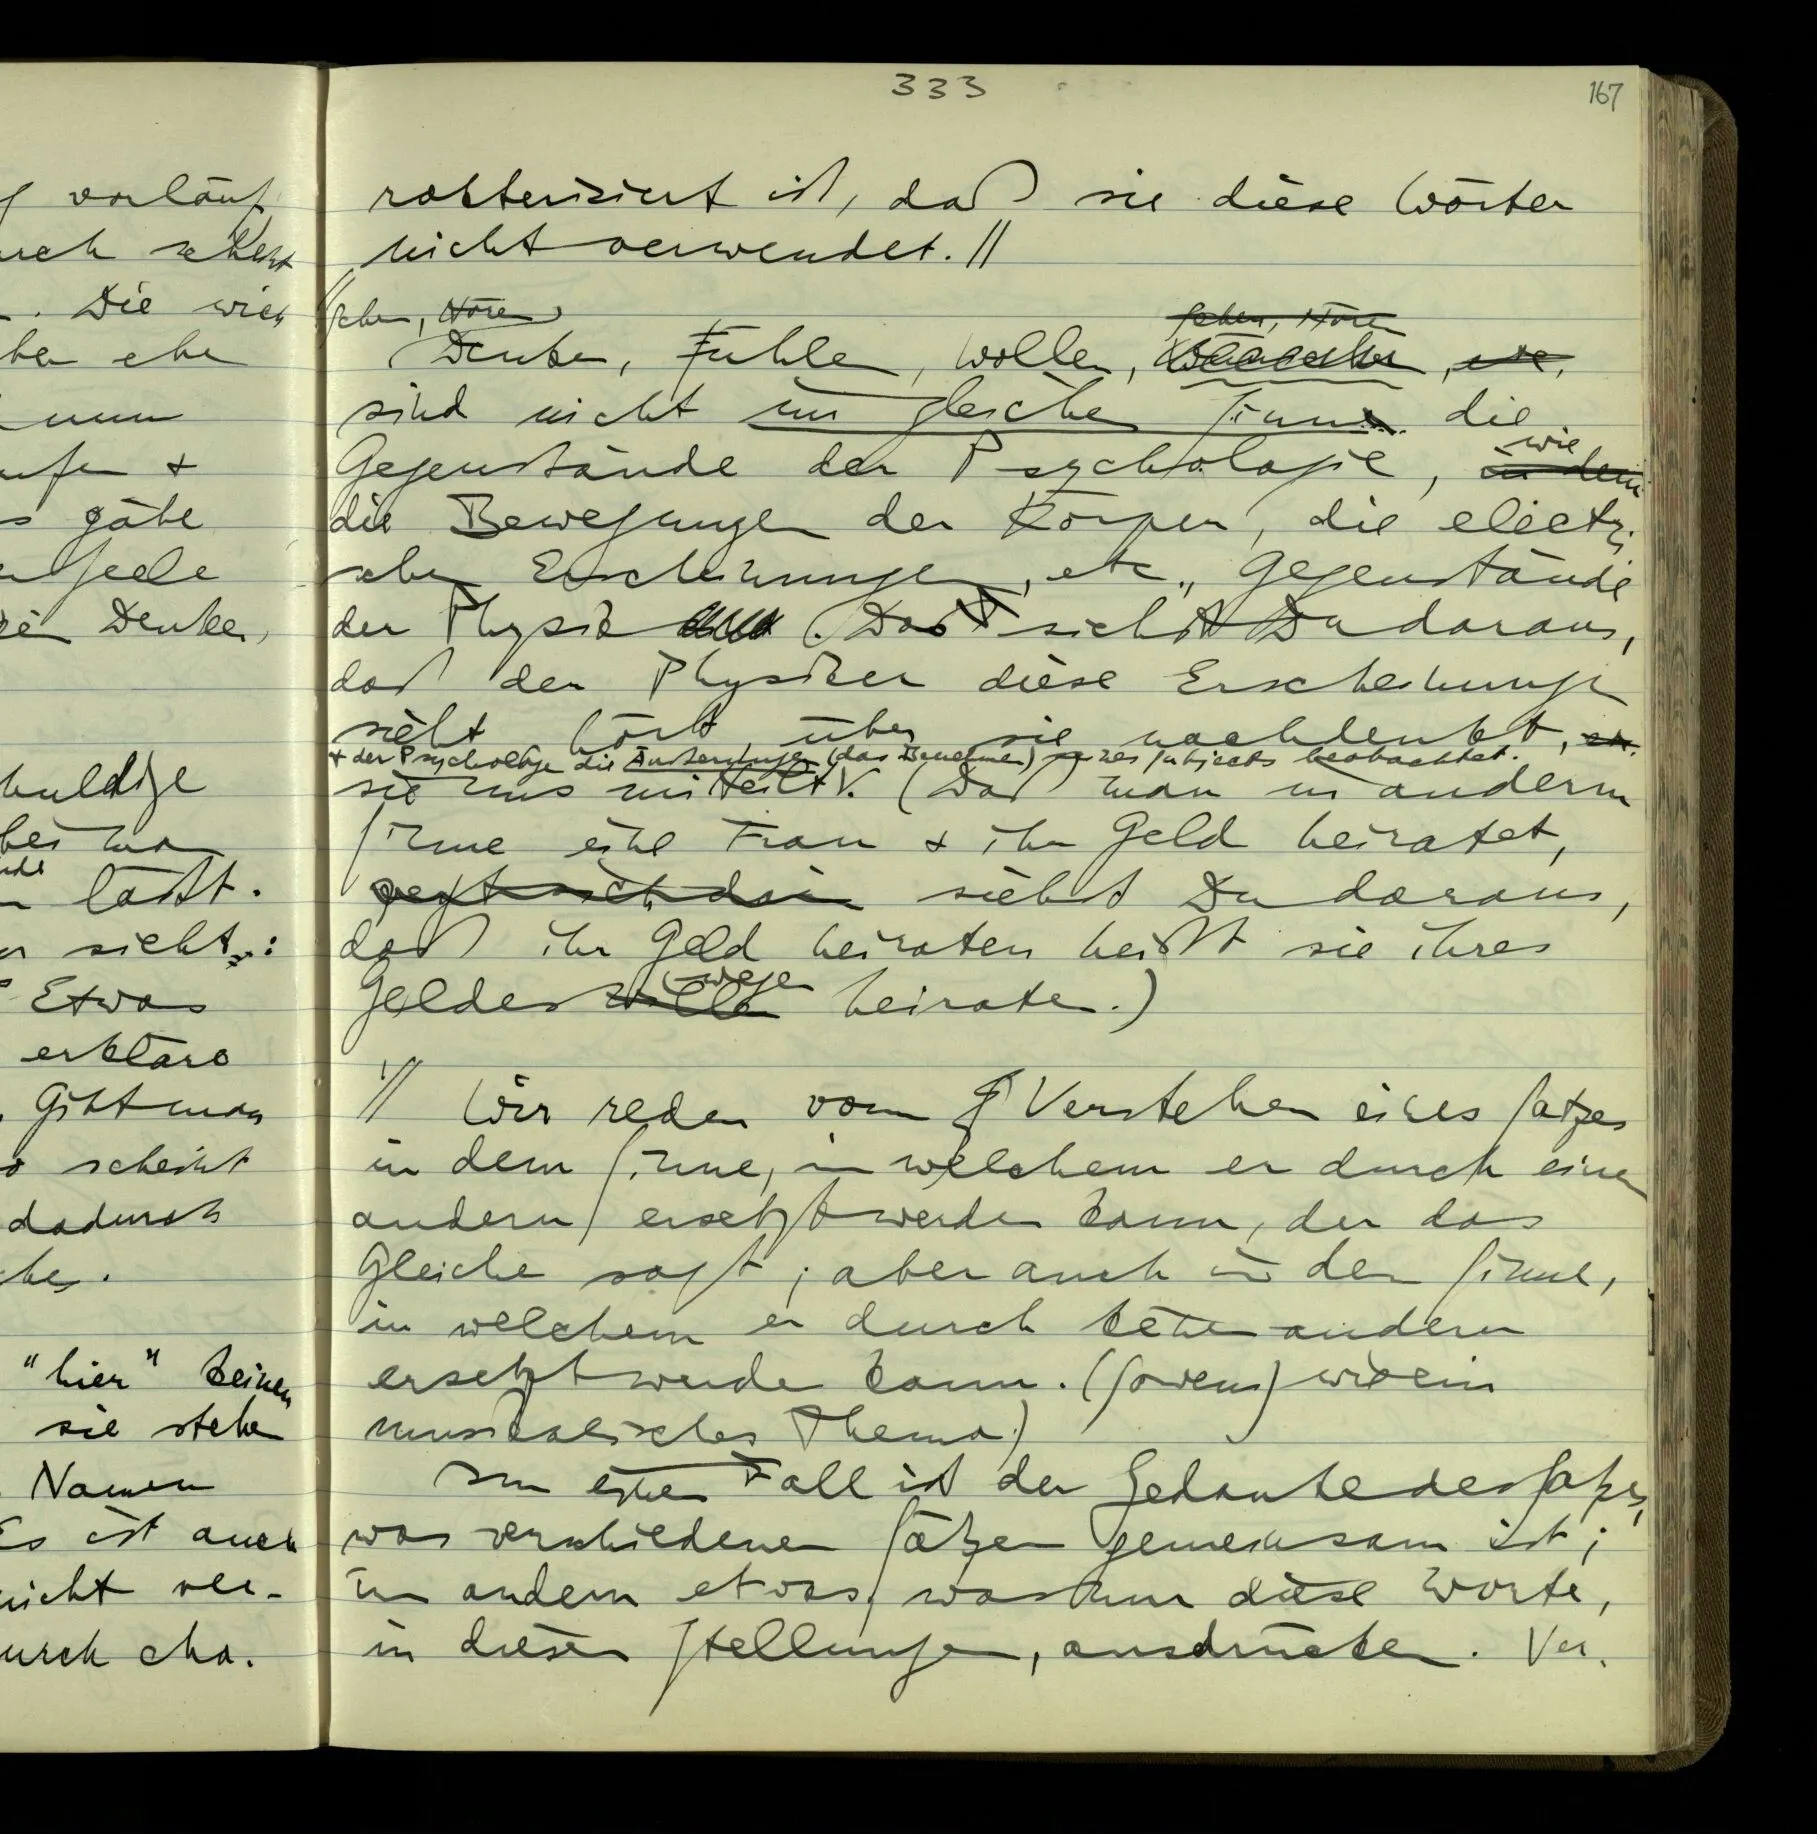 333
167
vorläuf
. Die wich
ber ehe
nun
ufen +
s gäbe
Seele
Denken,
huldige
läßt.
er sieht:
Etwas
erkläre
. Gibt man
o scheint
dadurch
"hier" keinen
sie stehen
Namen
Es ist auch
nicht ver-
urch cha-
rakterisiert ist, daß sie diese Wörter
nicht verwendet. //
// Sehen, Hören
Sehen, Hören
Denken, Fühlen, Wollen, etc,
sind nicht im gleichen Sinne die
wie
Gegenstände der Psychologie, in dem
die Bewegungen der Körper, die electri
schen Erscheinungen, etc., Gegenstände
der Physik. Das siehst Du daraus,
daß der Physiker diese Erscheinungen
sieht, hört, über sie nachdenkt,
+ der Psychologe die Äußerungen (das Benehmen) seines Subjects beobachtet.
sie uns mitteilt. (Daß man in anderm
Sinne eine Frau + ihr Geld heiratet,
siehst Du daraus,
daß ihr Geld heiraten heißt sie ihres
wegen
Geldes willen heiraten.)
// Wir reden vom Verstehen eines Satzes
in dem Sinne, in welchem er durch einen
andern ersetzt werden kann, der das
Gleiche sagt; aber auch in dem Sinne,
in welchem er durch keinen andern
ersetzt werden kann. (Sowenig wie ein
musikalisches Thema.)
Im einen Fall ist der Gedanke des Satzes,
was verschiedenen Sätzen gemeinsam ist;
im andern etwas, was nur diese Worte,
in diesen Stellungen, ausdrücken. Ver-